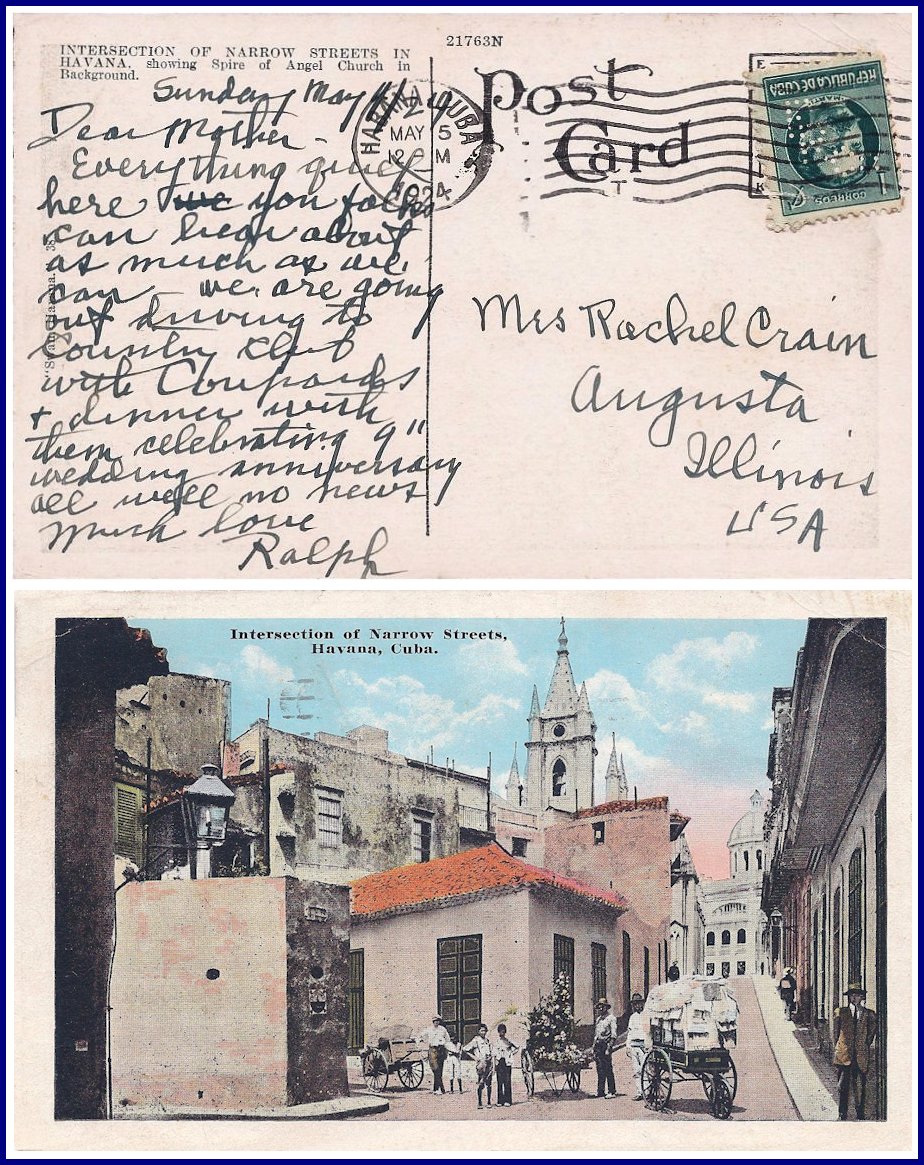 INTERSECTION OF NARROW STREETS IN
HAVANA, showing Spire of Angel Church in
Background.
21763N
Post
Card
HABANA CUBA
MAY 5
12 M
1924
REPUBLICA DE CUBA
CORREOS
"Swan" Havana.
Sunday May
Dear Mother -
Everything quiet
here we you folks
can hear about
as much as we
can - we are going
out driving to
country club
with
& dinner with
them celebrating 9"
wedding anniversary
all well no news
Much love
Ralph
Mrs Rachel Crain
Augusta
Illinois
USA
Intersection of Narrow Streets,
Havana, Cuba.